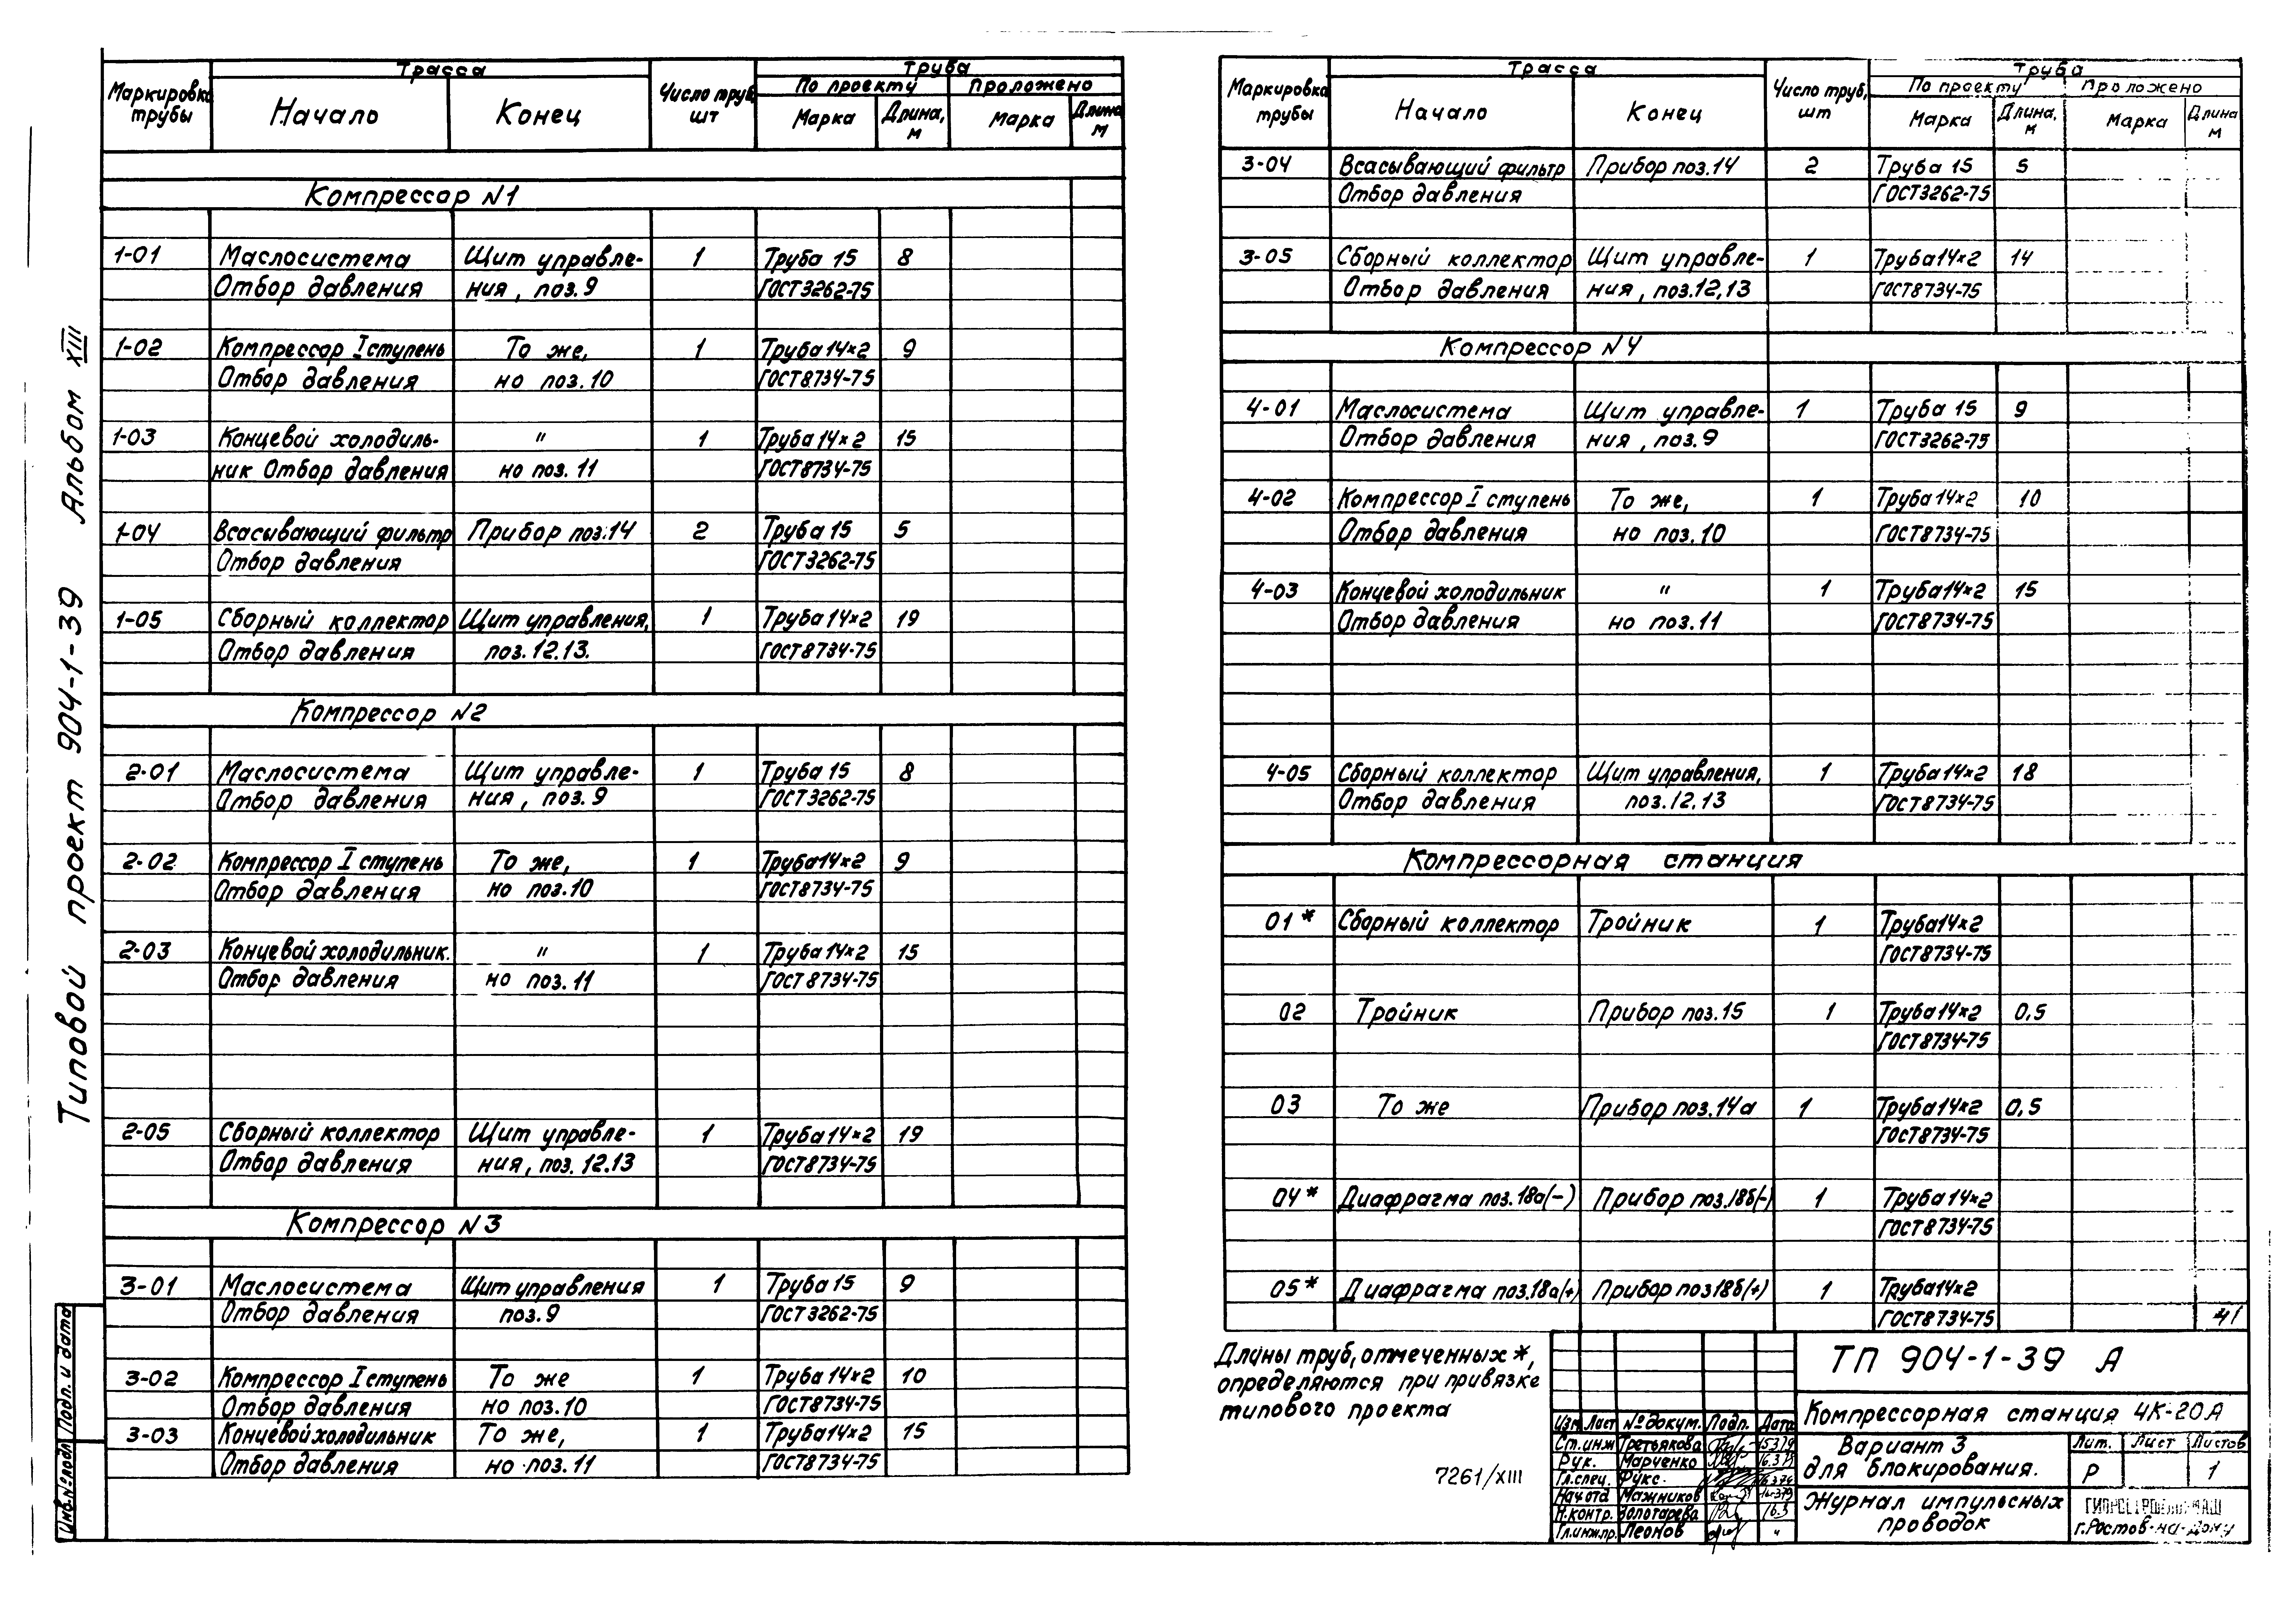 Типовой проект 904-1-39 Альбом XIII
Маркировка трубы | Трасса | Число труб, шт | Труба
Начало | Конец | По проекту | Проложено
Марка | Длина, м | Марка | Длина м
Компрессор N1
1-01 Маслосистема Щит управле- 1 Труба 15 8
Отбор давления ния, поз.9 ГОСТ3262-75
1-02 Компрессор I ступень То же, 1 Труба 14×2 9
Отбор давления но поз.10 ГОСТ8734-75
1-03 Концевой холодиль- " 1 Труба 14×2 15
ник Отбор давления но поз.11 ГОСТ8734-75
1-04 Всасывающий фильтр Прибор поз.14 2 Труба 15 5
Отбор давления ГОСТ3262-75
1-05 Сборный коллектор Щит управления, 1 Труба 14×2 19
Отбор давления поз.12.13. ГОСТ8734-75
Компрессор N2
2-01 Маслосистема Щит управле- 1 Труба 15 8
Отбор давления ния, поз.9 ГОСТ3262-75
2-02 Компрессор I ступень То же, 1 Труба14×2 9
Отбор давления но поз.10 ГОСТ8734-75
2-03 Концевой холодильник. " 1 Труба 14×2 15
Отбор давления но поз.11 ГОСТ8734-75
2-05 Сборный коллектор Щит управле- 1 Труба 14×2 19
Отбор давления ния, поз. 12.13 ГОСТ8734-75
Компрессор N3
3-01 Маслосистема Щит управления 1 Труба 15 9
Отбор давления поз.9 ГОСТ3262-75
3-02 Компрессор I ступень То же 1 Труба 14×2 10
Отбор давления но поз.10 ГОСТ8734-75
3-03 Концевой холодильник То же, 1 Труба14×2 15
Отбор давления но поз.11 ГОСТ8734-75
Маркировка трубы | Трасса | Число труб, шт | Труба
Начало | Конец | По проекту | Проложено
Марка | Длина, м | Марка | Длина м
3-04 Всасывающий фильтр Прибор поз.14 2 Труба 15 5
Отбор давления ГОСТ3262-75
3-05 Сборный коллектор Щит управле- 1 Труба14×2 14
Отбор давления ния, поз.12,13 ГОСТ8734-75
Компрессор N4
4-01 Маслосистема Щит управле- 1 Труба 15 9
Отбор давления ния, поз.9 ГОСТ3262-75
4-02 Компрессор I ступень То же, 1 Труба 14×2 10
Отбор давления но поз.10 ГОСТ8734-75
4-03 Концевой холодильник " 1 Труба14×2 15
Отбор давления но поз.11 ГОСТ8734-75
4-05 Сборный коллектор Щит управления, 1 Труба 14×2 18
Отбор давления поз.12.13 ГОСТ8734-75
Компрессорная станция
01* Сборный коллектор Тройник 1 Труба14×2
ГОСТ8734-75
02 Тройник Прибор поз.15 1 Труба14×2 0,5
ГОСТ8734-75
03 То же Прибор поз.14а 1 Труба14×2 0,5
ГОСТ8734-75
04* Диафрагма поз.18а(-) Прибор поз.18б(-) 1 Труба14×2
ГОСТ8734-75
05* Диафрагма поз.18а(+) Прибор поз18б(+) 1 Труба14×2
ГОСТ8734-75
41
Длины труб, отмеченных *,
определяются при привязке
типового проекта
7261/XIII
ТП 904-1-39 А
Компрессорная станция 4К-20А
Изм Лист № докум. Подп. Дата
Ст.инж Третьякова
Рук. Марченко
Гл.спец. Фукс.
Нач отд Мажников
Н.контр. Золотарева
Гл.инж.пр. Леонов "
Вариант 3
для блокирования.
Лит. Лист Листов
Р 1
Журнал импульсных
проводок
г.Ростов-на-Дону
Инв.№подл. Подп. и дата